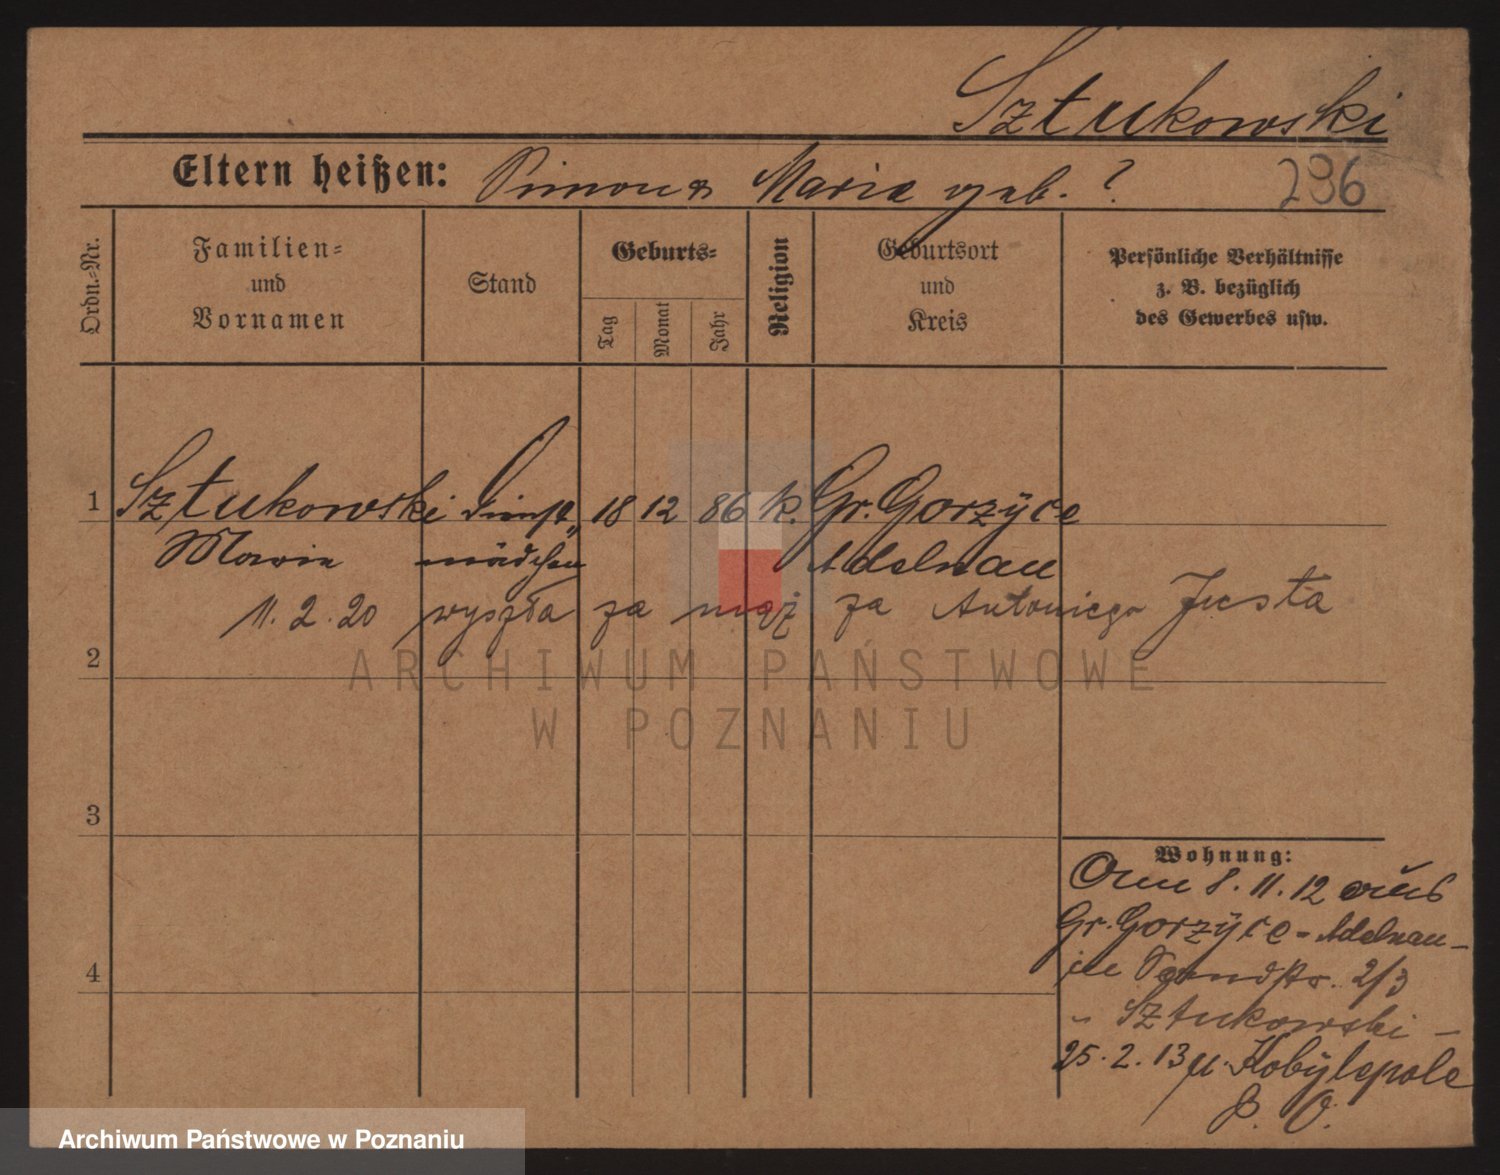 Sztukowski
Eltern heißen: Simon u Maria geb. ?
296
Ordn.-Nr.
Familien-
und
Vornamen
Stand
Geburts-
Tag
Monat
Jahr
Religion
Geburtsort
und
Kreis
Persönliche Verhältnisse
z. B. bezüglich
des Gewerbes usw.
1 Sztukowski Dienst„ 18 12 86 k. Gr. Gorzÿce
Marie mädchen Adelnau
11. 2. 20 wyszła za mąż za Antoniego Justa
2
ARCHIWUM PAŃSTWOWE
W POZNANIU
3
Wohnung:
Am 8. 11. 12 aus
Gr. Gorzÿce - Adelnau -
in 2/3
- Sztukowski -
4
25. 2. 13 Kobylepole
P. O.
Archiwum Państwowe w Poznaniu